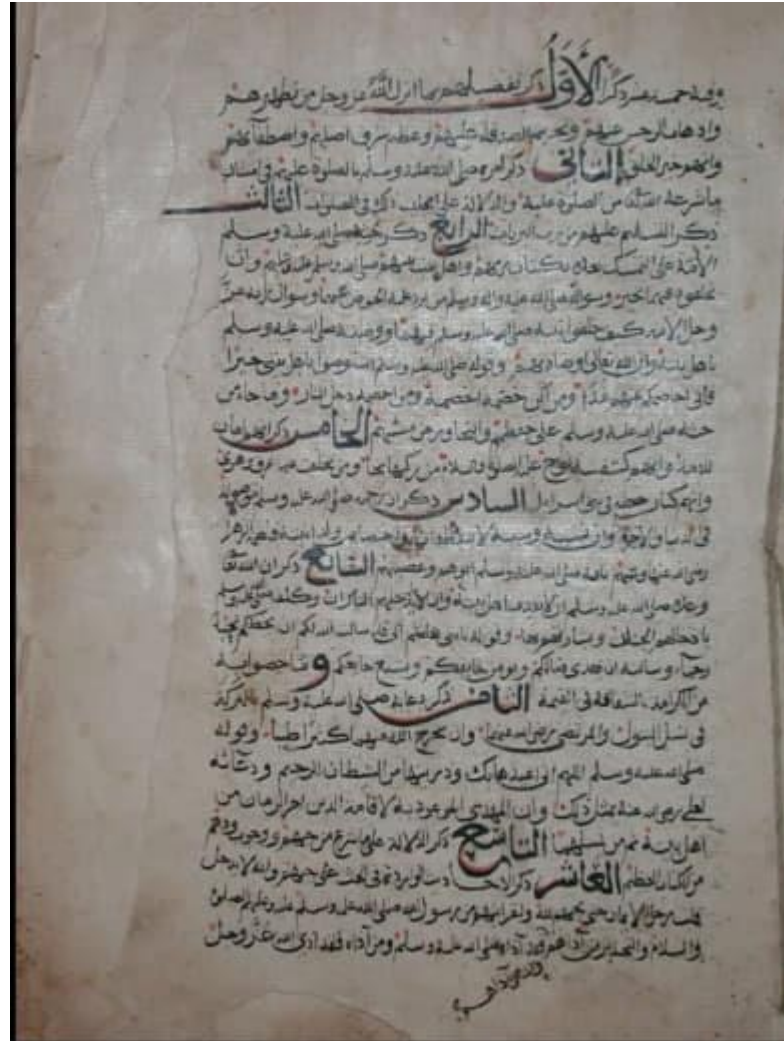 وفيه خمسة عشر ذكرا الأول ذكر تفضيلهم بما انزل الله عز وجل من تطهيرهم
واذهاب الرجس عنهم وتحريم الصدقة عليهم وعظم شرف اصلهم واصطفائهم
وانهم خير الخلق الثاني ذكر امره صلى الله عليه وسلم بالصلوة عليهم في امتثال
ما شرعه الله من الصلوة عليه والدلالة على ذلك في الصلوات الثالث
ذكر السلام عليهم من رب البريات الرابع ذكر حثه صلى الله عليه وسلم
الأمة على التمسك بعده بكتاب ربهم واهل بيت نبيهم صلى الله وسلم عليه وان
يخلفوه فيهما بخير وسواله صلى الله عليه واله وسلم من يرد عليه الحوض عنهما وسوال ربه عز
وجل الامة كيف خلفوا نبيه صلى الله عليه وسلم فيهما ووصيته صلى الله عليه وسلم
باهل بيته وان الله تعالى وقوله صلى الله عليه وسلم استوصوا باهل بيتي خيرا
فاني اخاصمكم عنهم غدا ومن اكن خصمه اخصمه ومن اخصمه دخل النار وما جاء من
حثه صلى الله عليه وسلم على حفظهم والتجاوز عن مسيئهم الخامس ذكر انهم امان
للامة وانهم كسفينة نوح عليه الصلوة والسلام من ركبها نجا ومن تخلف عنها غرق وهوى
وانهم كباب حطة في بني اسرائيل السادس ذكر ان رحمه صلى الله عليه وسلم موصولة
في الدنيا والاخرة وان نسبه وسببه لا ينقطعان واولاد ابنته فاطمة الزهرا
رضي الله عنها وبنيهم بانه صلى الله عليه وسلم ابوهم وعصبتهم السابع ذكر ان الله تعالى
وعده صلى الله عليه وسلم ان لا يعذب اهل بيته وان لا يدخلهم النيران
بادخالهم الجنان وقوله يا بني هاشم اني قد سالت الله لكم ان يجعلكم نجباء
رحماء وسالته ان يهدي ضالكم ويؤمن خائفكم ويشبع جائعكم وما خصوا به
من اكرامه بالشفاعة في القيمة الثامن ذكر دعائه صلى الله عليه وسلم بالبركة
في نسل البتول والمرتضى رضي الله عنهما وان يخرج الله منهما كثيرا طيبا وقوله
صلى الله عليه وسلم اللهم اني اعيذها بك وذريتها من الشيطان الرجيم ودعائه
لعلي رضي الله عنه بمثل ذلك وان المهدي الموعود به لاقامة الدين اخر الزمان من
اهل بيته ثم من نسلهما التاسع ذكر الدلالة على ما شرع من حبهم ووجوب ودهم
من الكتاب العظيم العاشر ذكر الاحاديث الواردة في الحث على حبهم وانه لا يدخل
قلب رجل الايمان حتى يحبهم لله ولقرابتهم من رسول الله صلى الله عليه وسلم وعليهم الصلوة
والسلام والتحذير من اذاهم فقد اذاه صلى الله عليه وسلم ومن آذاه فقد اذى الله عز وجل